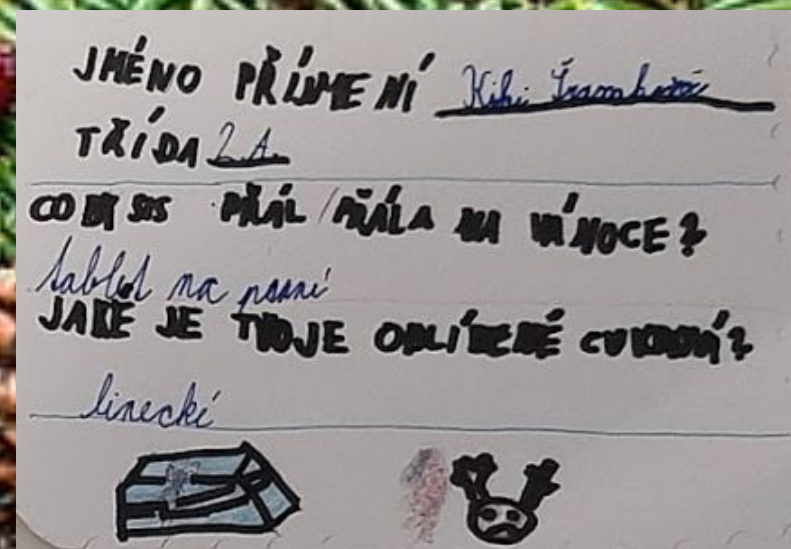 JMÉNO PŘÍJMENÍ Kiki Šramková
TŘÍDA 2.A.
CO BY SIS PŘÁL/PŘÁLA NA VÁNOCE?
tablet na psaní
JAKÉ JE TVOJE OBLÍBENÉ CUKROVÍ?
linecké